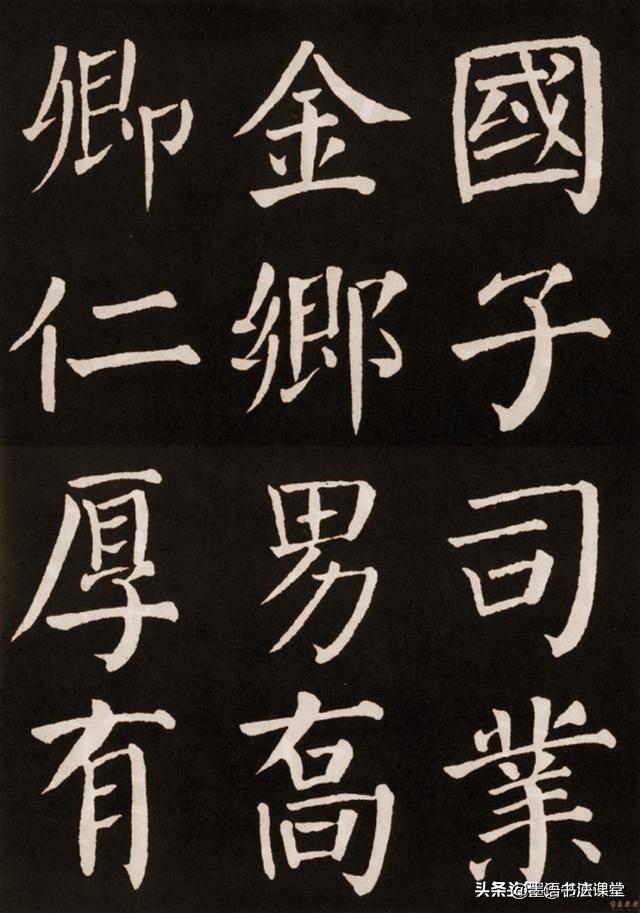 國子司業
金鄉男喬
卿仁厚有
头条@墨语书法课堂